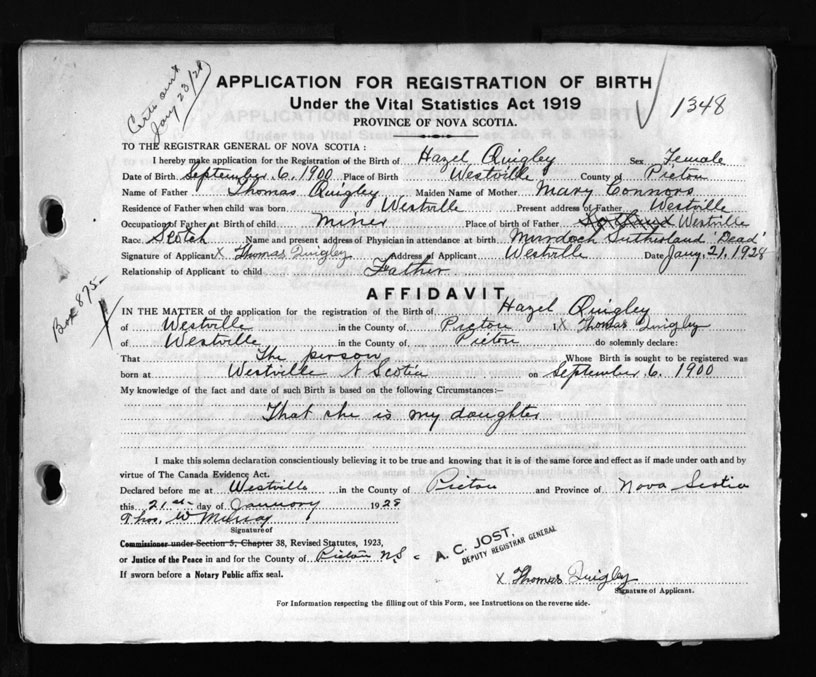 Cert sent
Jany 23/28
APPLICATION FOR REGISTRATION OF BIRTH
Under the Vital Statistics Act 1919
PROVINCE OF NOVA SCOTIA.
1348
TO THE REGISTRAR GENERAL OF NOVA SCOTIA:
I hereby make application for the Registration of the Birth of Hazel Quigley Sex Female
Date of Birth September 6, 1900 Place of Birth Westville County of Pictou
Name of Father Thomas Quigley Maiden Name of Mother Mary Connors
Residence of Father when child was born Westville Present address of Father Westville
Occupation of Father at Birth of child miner Place of birth of Father Westville
Race Scotch Name and present address of Physician in attendance at birth Murdoch Sutherland 'Dead'
Signature of Applicant X Thomas Quigley Address of Applicant Westville Date Jany, 21, 1928
Relationship of Applicant to child Father
Box 875-
X
AFFIDAVIT
IN THE MATTER of the application for the registration of the Birth of Hazel Quigley
of Westville in the County of Pictou I, X Thomas Quigley
of Westville in the County of Pictou do solemnly declare:
That The person Whose Birth is sought to be registered was
born at Westville N Scotia on September, 6, 1900
My knowledge of the fact and date of such Birth is based on the following Circumstances:—
That she is my daughter
I make this solemn declaration conscientiously believing it to be true and knowing that it is of the same force and effect as if made under oath and by
virtue of The Canada Evidence Act.
Declared before me at Westville in the County of Pictou and Province of Nova Scotia
this 21st day of January 1928
Thos. W Murray
Signature of
Commissioner under Section 5, Chapter 38, Revised Statutes, 1923,
or Justice of the Peace in and for the County of Pictou N,S
A. C. JOST,
DEPUTY REGISTRAR GENERAL
If sworn before a Notary Public affix seal.
X Thomas Quigley
Signature of Applicant.
For Information respecting the filling out of this Form, see Instructions on the reverse side.